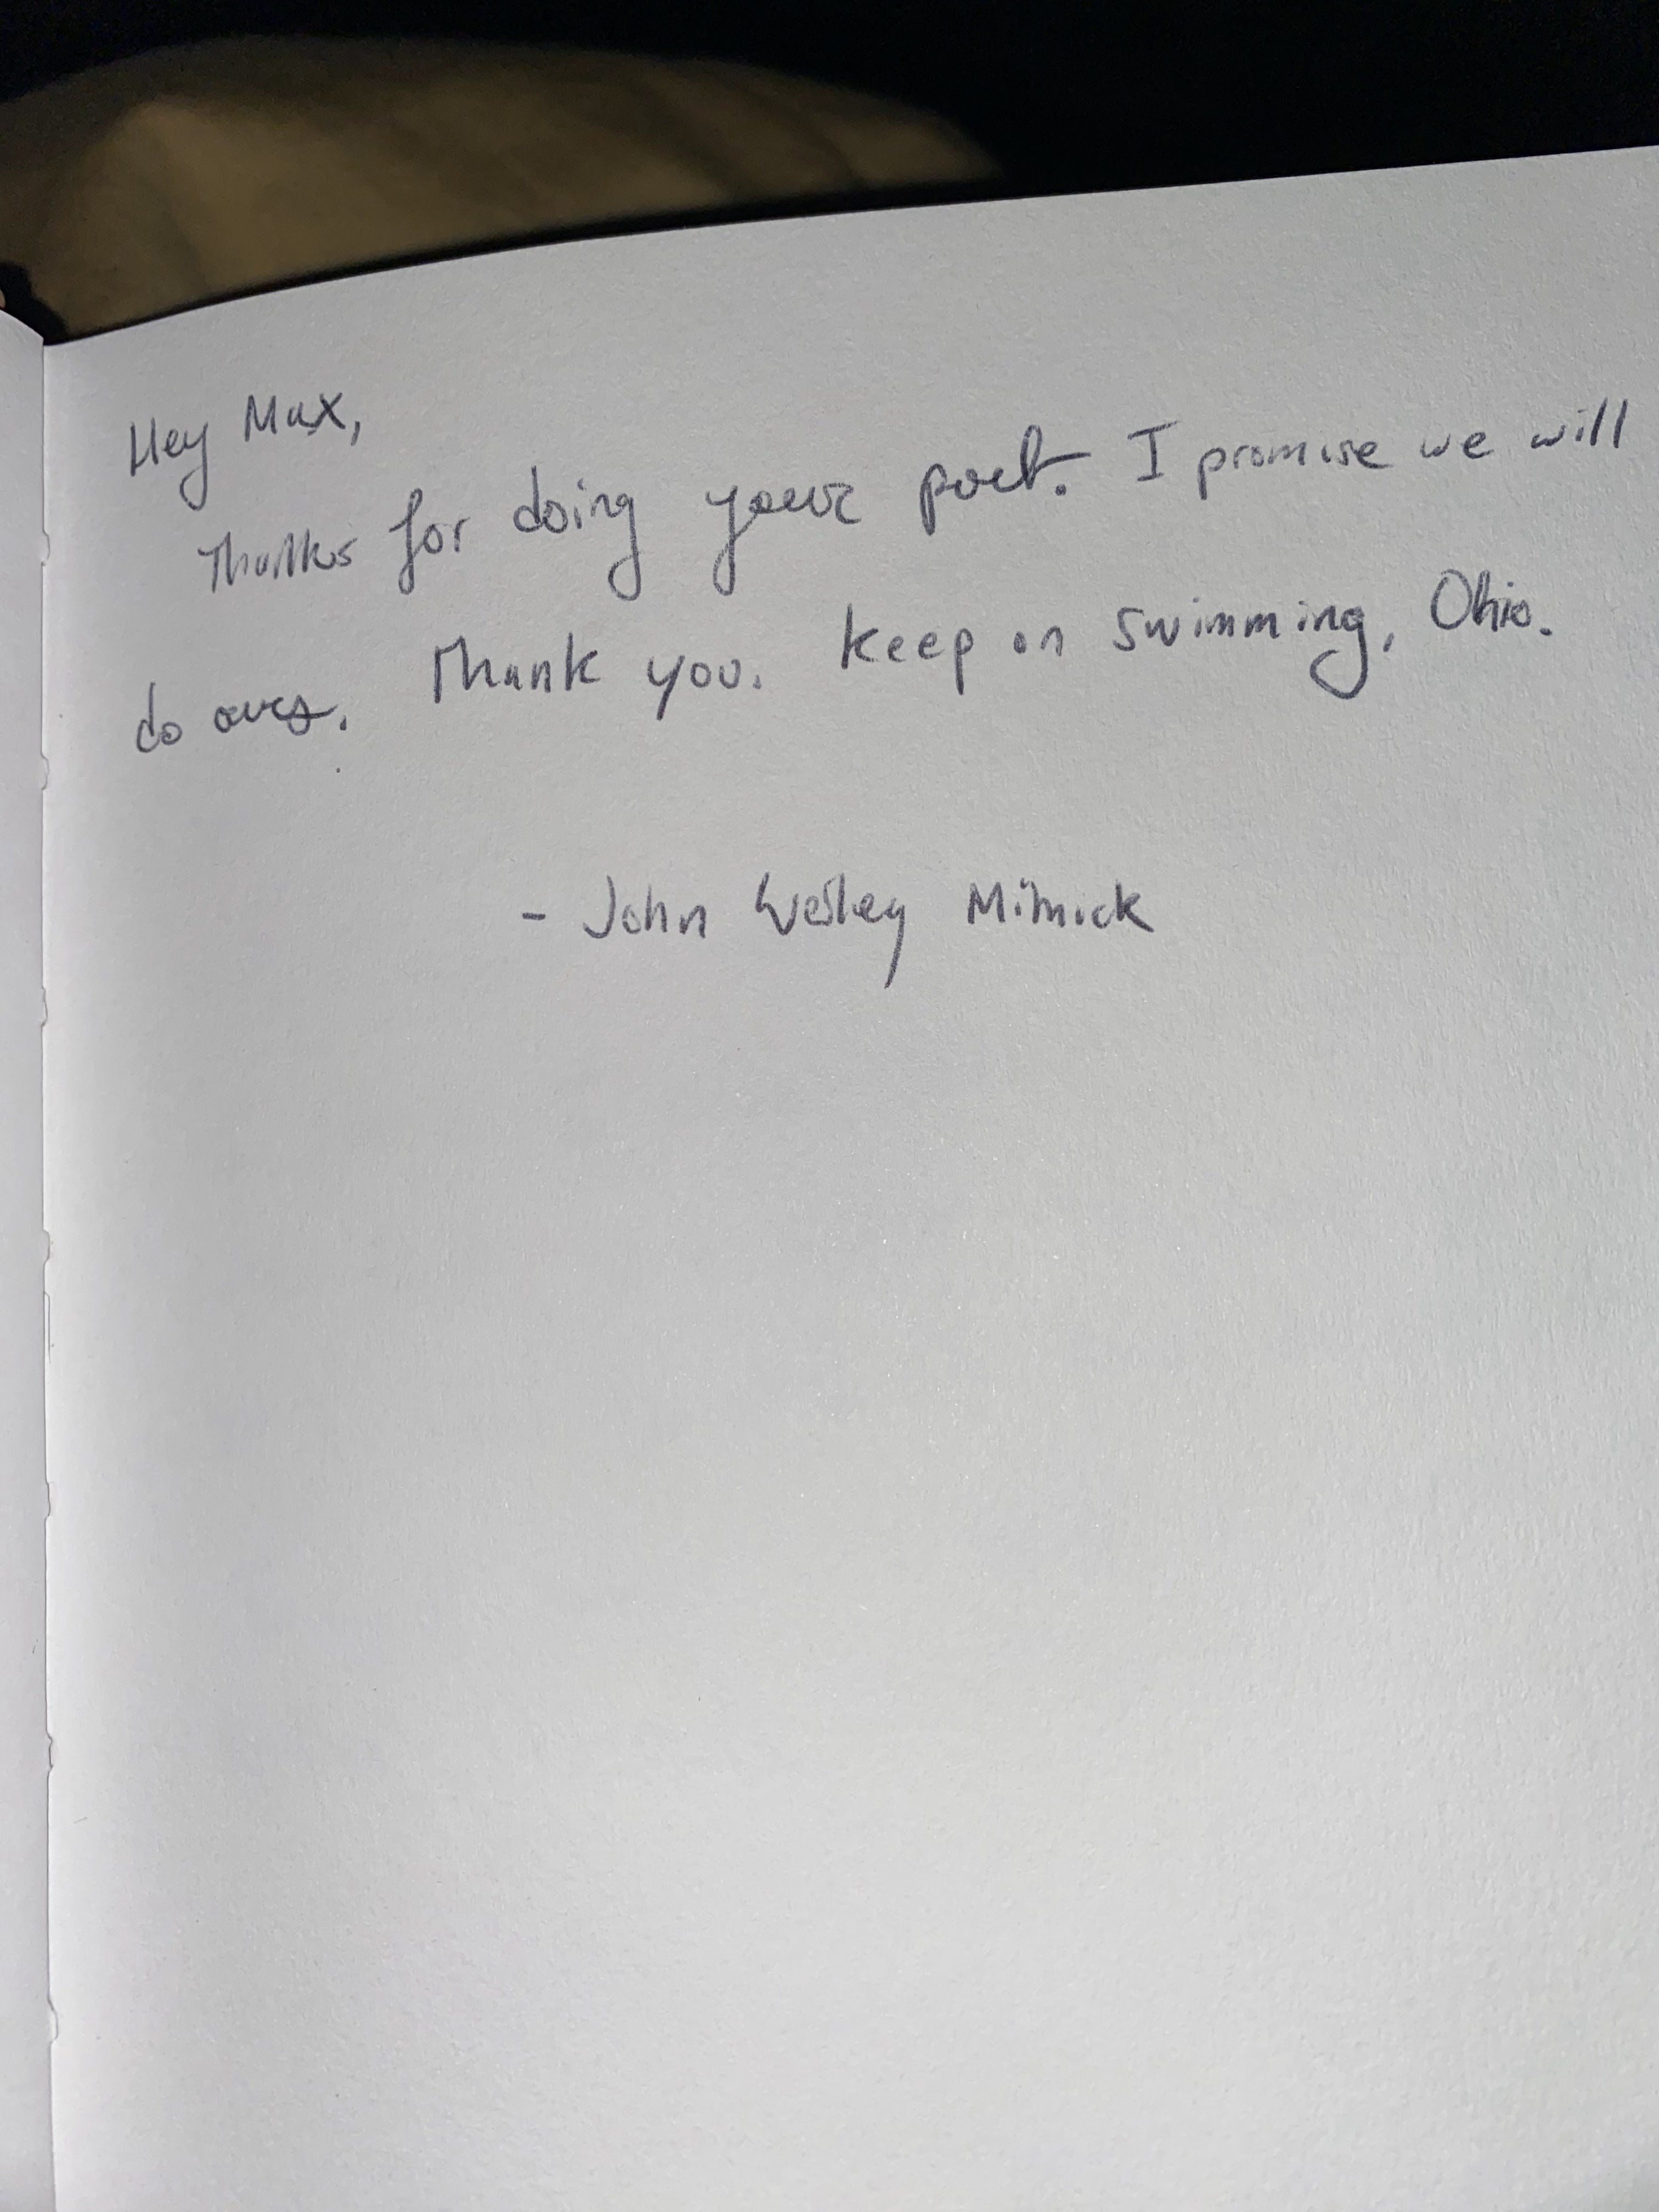 Hey Max,
Thanks for doing your part. I promise we will
do ours. Thank you. Keep on swimming, Ohio.
- John Wesley